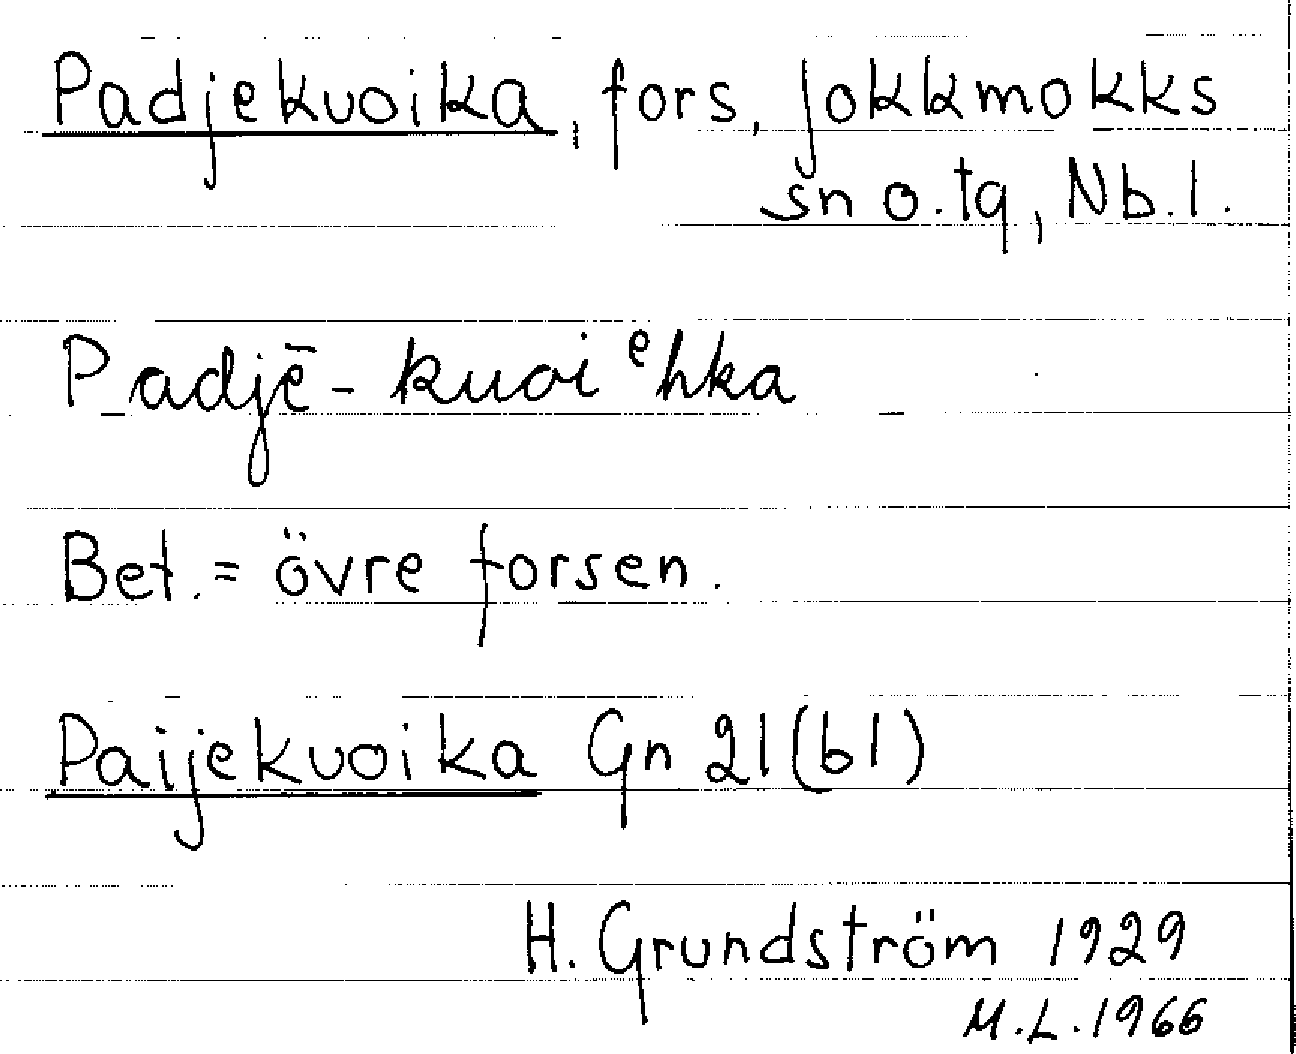 Padjekuoika, fors, Jokkmokks
sn o. tg, Nb.l.
Padjē-kuoiᵉhka
Bet. = övre forsen.
Paijekuoika Gn 21(bl)
H. Grundström 1929
M.L. 1966